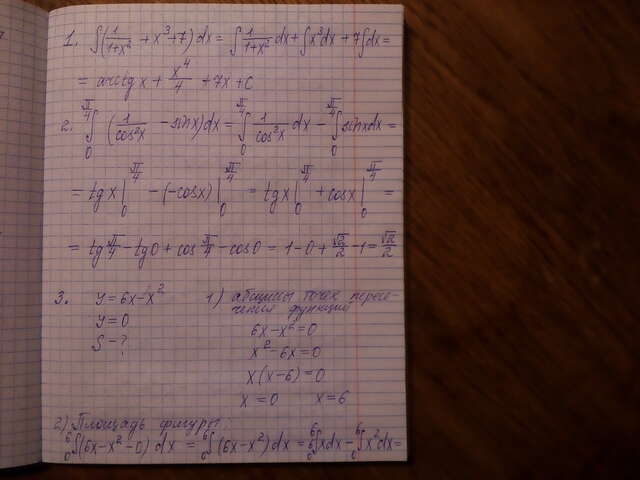 1. ∫(1/(1+x²) + x³+7) dx = ∫ 1/(1+x²) dx + ∫x³dx + 7∫dx =
= arcctg x + x⁴/4 + 7x + C
2. ∫₀^(π/4) (1/cos²x − sinx)dx = ∫₀^(π/4) 1/cos²x dx − ∫₀^(π/4) sinxdx =
= tg x |₀^(π/4) − (−cosx) |₀^(π/4) = tg x |₀^(π/4) + cosx |₀^(π/4) =
= tg π/4 − tg0 + cos π/4 − cos0 = 1−0+ √2/2 −1 = √2/2
3. y = 6x−x² 1) абсциссы точек пересе-
y=0 чения функций
S−? 6x−x²=0
x²−6x=0
x(x−6)=0
x=0 x=6
2) Площадь фигуры:
₀⁶∫(6x−x²−0) dx = ₀⁶∫(6x−x²)dx = 6₀⁶∫xdx − ₀⁶∫x²dx=